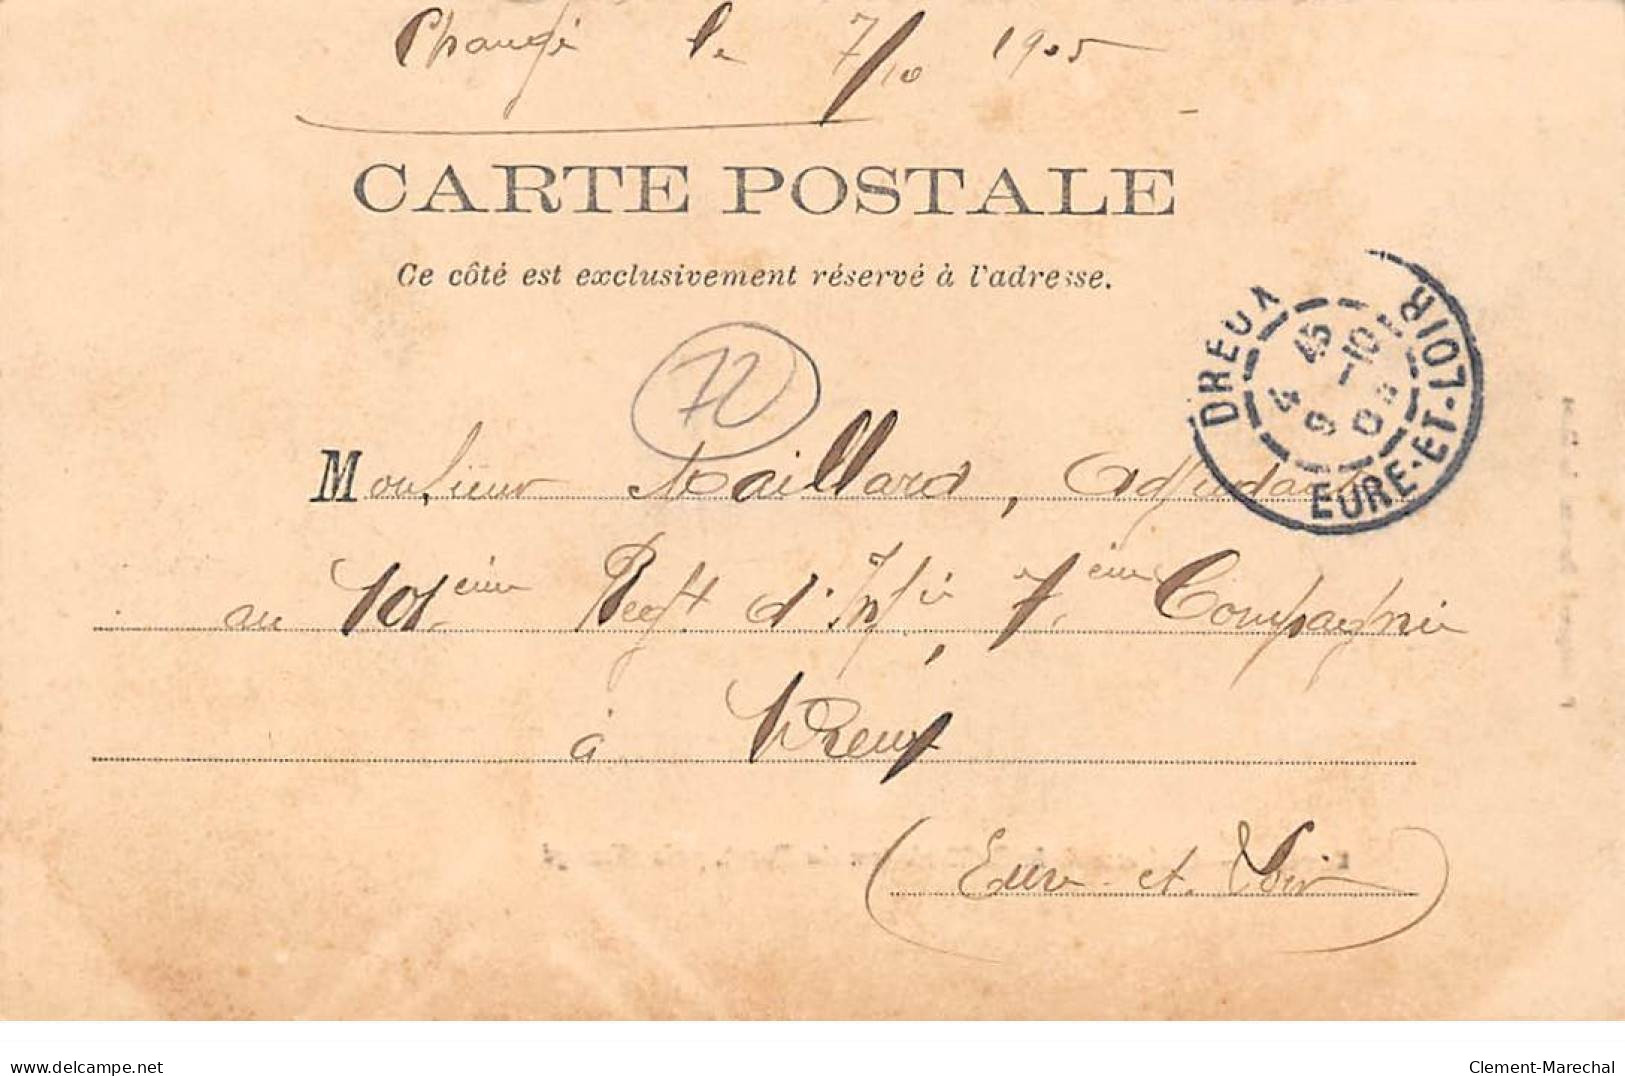 Changé le 7/10 1905
CARTE POSTALE
Ce côté est exclusivement réservé à l'adresse.
72
DREUX
4 45
9 -10
05
EURE-ET-LOIR
Monsieur Maillard, Adjudant
au 101ème Regt d'Infie, 7ème Compagnie
à Dreux
(Eure-et-Loir)
delcampe.net
Clement-Marechal